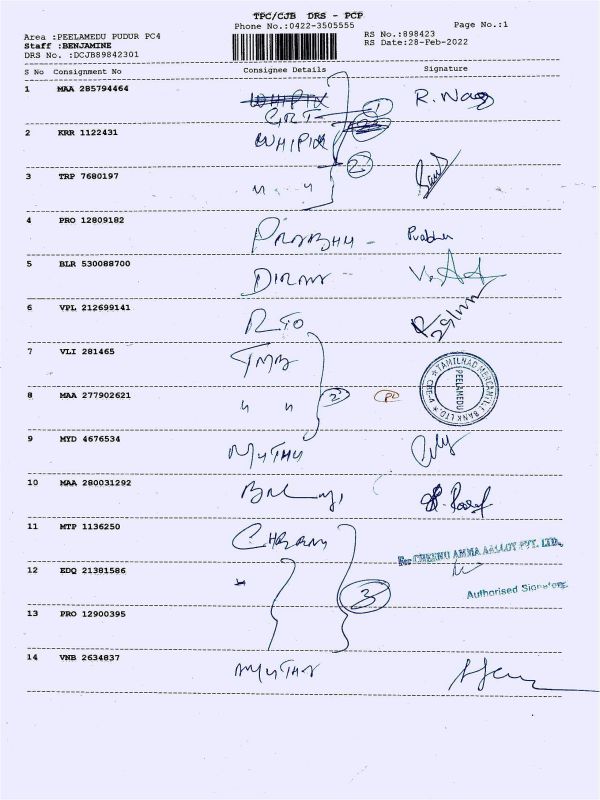 TPC/CJB DRS - PCP
Phone No.:0422-3505555
Page No.:1
Area :PEELAMEDU PUDUR PC4
RS No.:898423
Staff :BENJAMINE
RS Date:28-Feb-2022
DRS No. :DCJB89842301
S No Consignment No Consignee Details Signature
1 MAA 285794464 R. Nag
GRT - 1
2 KRR 1122431 WHIPIX
2
3 TRP 7680197 " "
4 PRO 12809182 PRABHU - Prabhu
5 BLR 530088700
6 VPL 212699141 RTO
7 VLI 281465 TMB
TAMILNAD MERCANTILE BANK LTD. PEELAMEDU
8 MAA 277902621 " " 2
9 MYD 4676534 MUTHU
10 MAA 280031292
11 MTP 1136250
For CHEENU AMMA ALLOY PVT. LTD.,
12 EDQ 21381586
Authorised Signatory
3
13 PRO 12900395
14 VNB 2634837